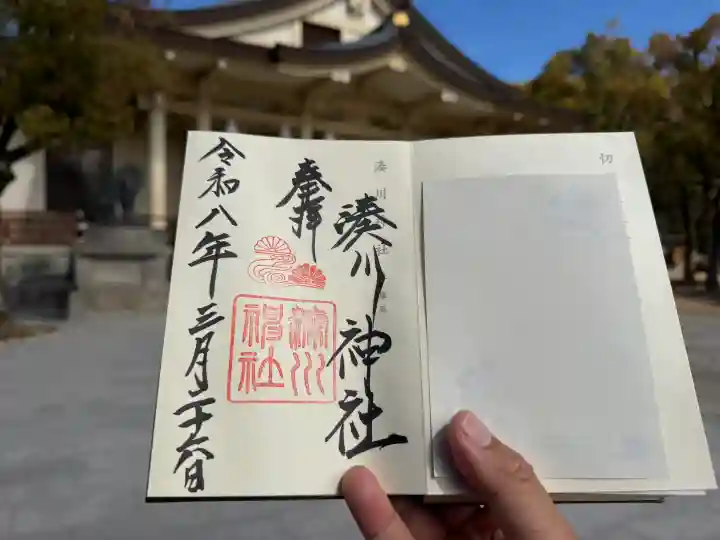 切
湊川神社
奉拝
湊川神社
令和八年三月二十六日